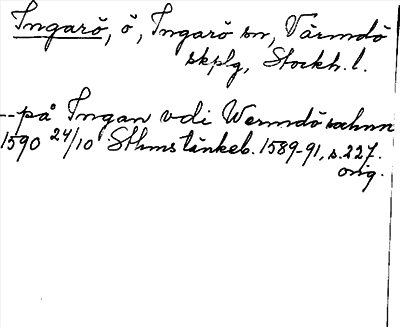 Ingarö, ö, Ingarö sn, Värmdö
skplg, Stockh. l.
--på Ingan vdi Wermdö sochnn
1590 24/10 Sthms tänkeb. 1589-91, s. 227.
orig.